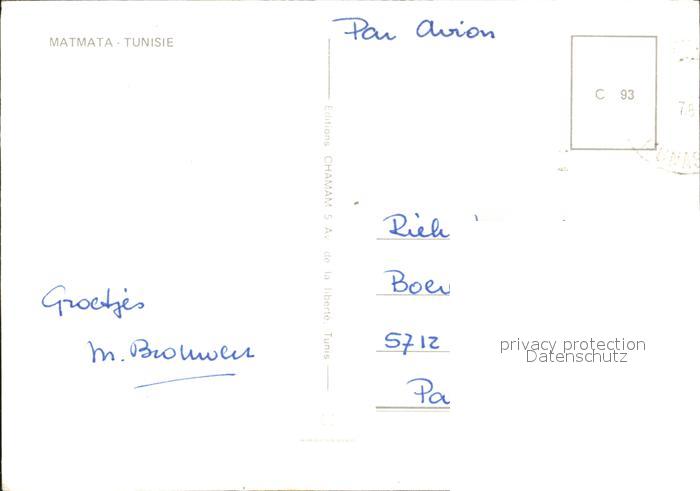 MATMATA - TUNISIE
Par Avion
C 93
Editions CHAMAM 5 Av. de la liberté. Tunis
Groetjes
M. Brouwer
Riek
Boer
5712
Pa
privacy protection
Datenschutz